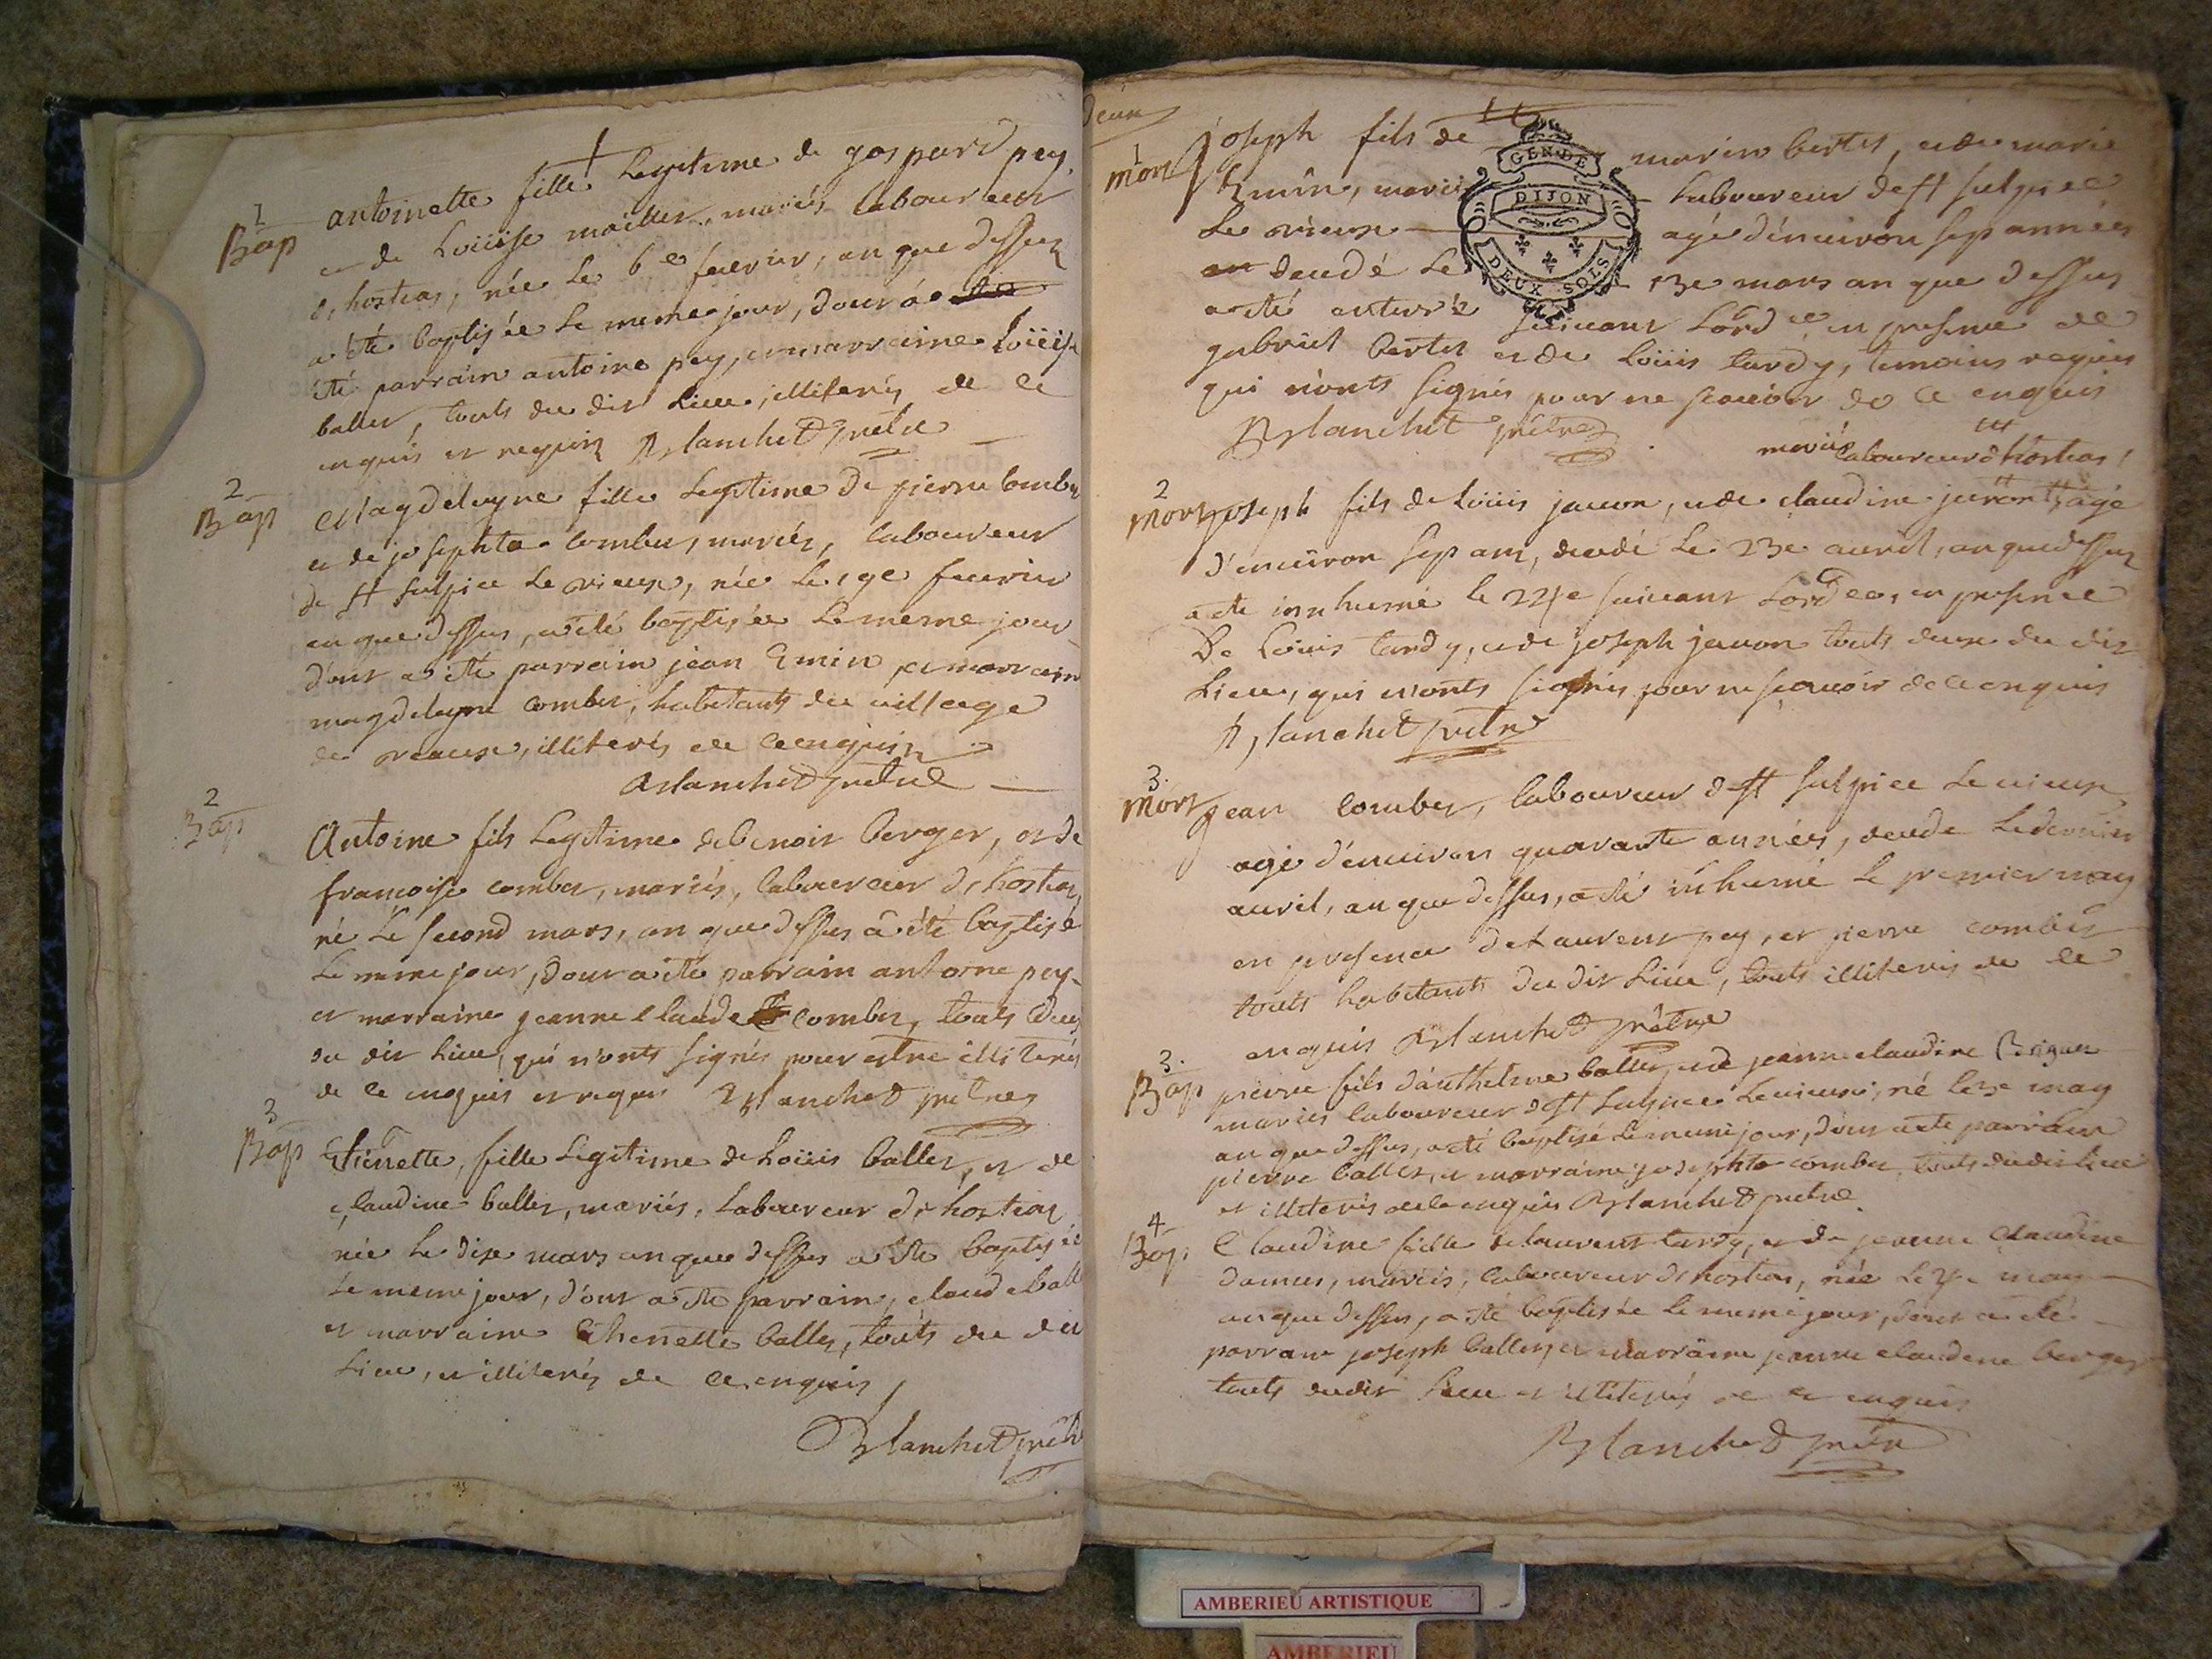 1
Bap
antoinette fille Legitime de gaspard pey,
et de Loüise mailler, mariés laboureur
d'hostias, née le 6e feuvrier, an que dessus
a été baptisée le meme jour, dout a
été parrain antoine pey, et marraine Loüise
baller, touts du dit Lieu, illiterés de ce
enquis et requis Blanchet prêtre
2
Bap
Magdeleyne fille Legitime de pierre combet
et de josephte combet, mariés, laboureur
de st sulpice le vieux, née le 19e feuvrier
an que dessus, a été baptisée le meme jour
d'out a été parrain jean Emin et marraine
magdeleyne combet, habitants du village
de preaux, illiterés de ce enquis
Blanchet prêtre
2
Bap
Antoine fils Legitime de benoit berger, et de
françoise combet, mariés, laboureur d'hostias,
né le second mars, an que dessus a été baptisé
le meme jour, dout a été parrain antoine pey
et marraine jeanne claude combet, touts deux
du dit Lieu, qui n'onts signés pour estre illiterés
de ce enquis et requis Blanchet prêtre
3
Bap
Ethienette, fille Legitime de Loüis baller, et de
claudine baller, mariés, Laboureur d'hostias
née le dixe mars an que dessus a été baptisée
le meme jour, d'out a été parrain, claude ball
et marraine Ethienette baller, touts du dit
Lieu, et illiterés de ce enquis,
Blanchet prêtre
deux
1
Mort
joseph fils de marin bertet, et de marie
Emin, mariés Laboureur de st sulpice
le vieux agé d'enuiron sept années
decedé le 13e mars an que dessus
a été enterré suiuant Lord ce en presence de
gabriel bertet et de Loüis tardy, temoins requis
qui n'onts signés pour ne scauoir de ce enquis
Blanchet prêtre
mariés laboureur d'hostias,
2
Mort
joseph fils de Loüis jauon, et de claudine agé
d'enuiron sept ans, decedé le 23e auril, an que dessus
a été innhumé le 24e suiuant Lord ce, en presence
De Loüis tardy, et de joseph jauon touts deux du dit
Lieu, qui n'onts signés pour ne sçauoir de ce enquis
Blanchet prêtre
3
Mort
jean combet, laboureur de st sulpice le vieux
agé d'enuiron quarante années, decedé le dernier
auril, an que dessus, a été inhumé le premier may
en presence de Laurent pey, et pierre combet
touts habitants du dit Lieu, touts illiterés de ce
enquis Blanchet prêtre
3
Bap
pierre fils d'anthelme baller, et de jeanne claudine
mariés laboureur de st sulpice le vieux, né le may
an que dessus, a été baptisé le meme jour, d'out a été parrain
pierre baller, et marraine josephte combet, touts du dit Lieu
et illiterés de ce enquis Blanchet prêtre
4
Bap
Claudine fille de laurent tardy, et de jeanne claudine
mariés, laboureur d'hostias, née le may
an que dessus, a été baptisée le meme jour, dout a été
parrain joseph baller, et marraine jeanne claudine berger
touts du dit Lieu et illiterés de ce enquis
Blanchet prêtre
GEN DE
DIJON
DEUX SOLS
AMBERIEU ARTISTIQUE
AMBERIEU